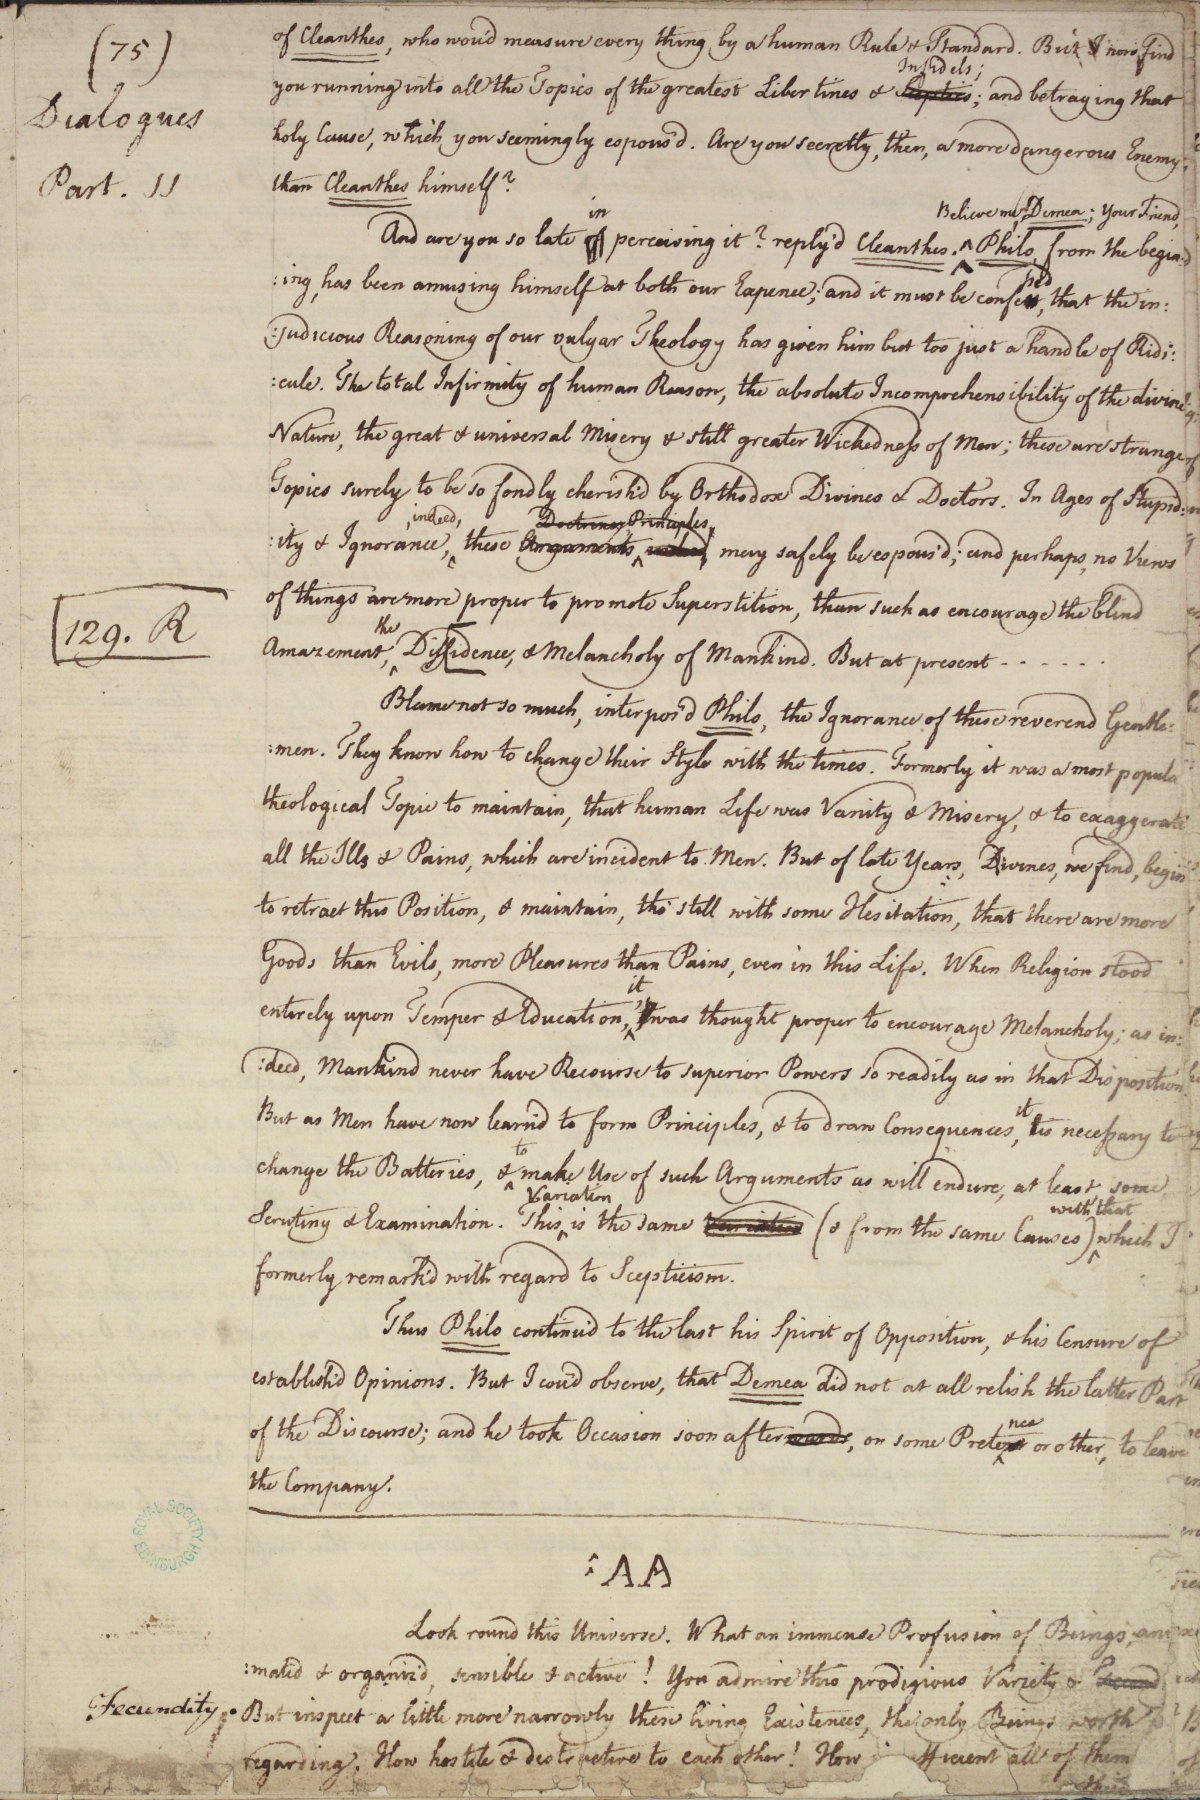 (75)
Dialogues
Part. 11
of Cleanthes, who wou'd measure every thing by a human Rule & Standard. But I now find
Infidels;
you running into all the Topics of the greatest Libertines & Sceptics; and betraying that
holy Cause, which you seemingly espous'd. Are you secretly, then, a more dangerous Enemy
than Cleanthes himself?
in Believe me, Demea; Your Friend,
And are you so late perceiving it? reply'd Cleanthes. ^ Philo, from the begin
:ing, has been amusing himself at both our Expence; and it must be confessed, that the in:
:judicious Reasoning of our vulgar Theology has given him but too just a handle of Ridi:
:cule. The total Infirmity of human Reason, the absolute Incomprehensibility of the divine
Nature, the great & universal Misery & still greater Wickedness of Men; these are strange
Topics surely to be so fondly cherish'd by Orthodox Divines & Doctors. In Ages of Stupid:
,indeed, Doctrines Principles,
:ity & Ignorance, ^ these Arguments ^ indeed, may safely be espous'd; and perhaps, no Views
of things are more proper to promote Superstition, than such as encourage the blind
the
129. R
Amazement, ^ Diffidence, & Melancholy of Mankind. But at present - - - - - -
Blame not so much, interpos'd Philo, the Ignorance of these reverend Gentle:
:men. They know how to change their Style with the times. Formerly it was a most popula
theological Topic to maintain, that human Life was Vanity & Misery, & to exaggerate
all the Ills & Pains, which are incident to Men. But of late Years, Divines, we find, begin
to retract this Position, & maintain, tho' still with some Hesitation, that there are more
Goods than Evils, more Pleasures than Pains, even in this Life. When Religion stood
it
entirely upon Temper & Education, ^ was thought proper to encourage Melancholy; as in:
:deed, Mankind never have Recourse to superior Powers so readily as in that Disposition
it
But as Men have now learn'd to form Principles, & to draw Consequences, is necessary to
to
change the Batteries, & ^ make Use of such Arguments as will endure, at least some
Variation with that
Scrutiny & Examination. This ^ is the same Variation (& from the same Causes) ^ which I
formerly remark'd with regard to Scepticism.
Thus Philo continu'd to the last his Spirit of Opposition, & his Censure of
establish'd Opinions. But I cou'd observe, that Demea did not at all relish the latter Part
nce
of the Discourse; and he took Occasion soon afterwards, on some Pretext or other, to leave
the Company.
ROYAL SOCIETY EDINBURGH
AA
Look round this Universe. What an immense Profusion of Beings, ani
:mated & organiz'd, sensible & active! You admire this prodigious Variety &
Fecundity.
But inspect a little more narrowly these living Existences, the only Beings worth
regarding. How hostile & destructive to each other! How all of them